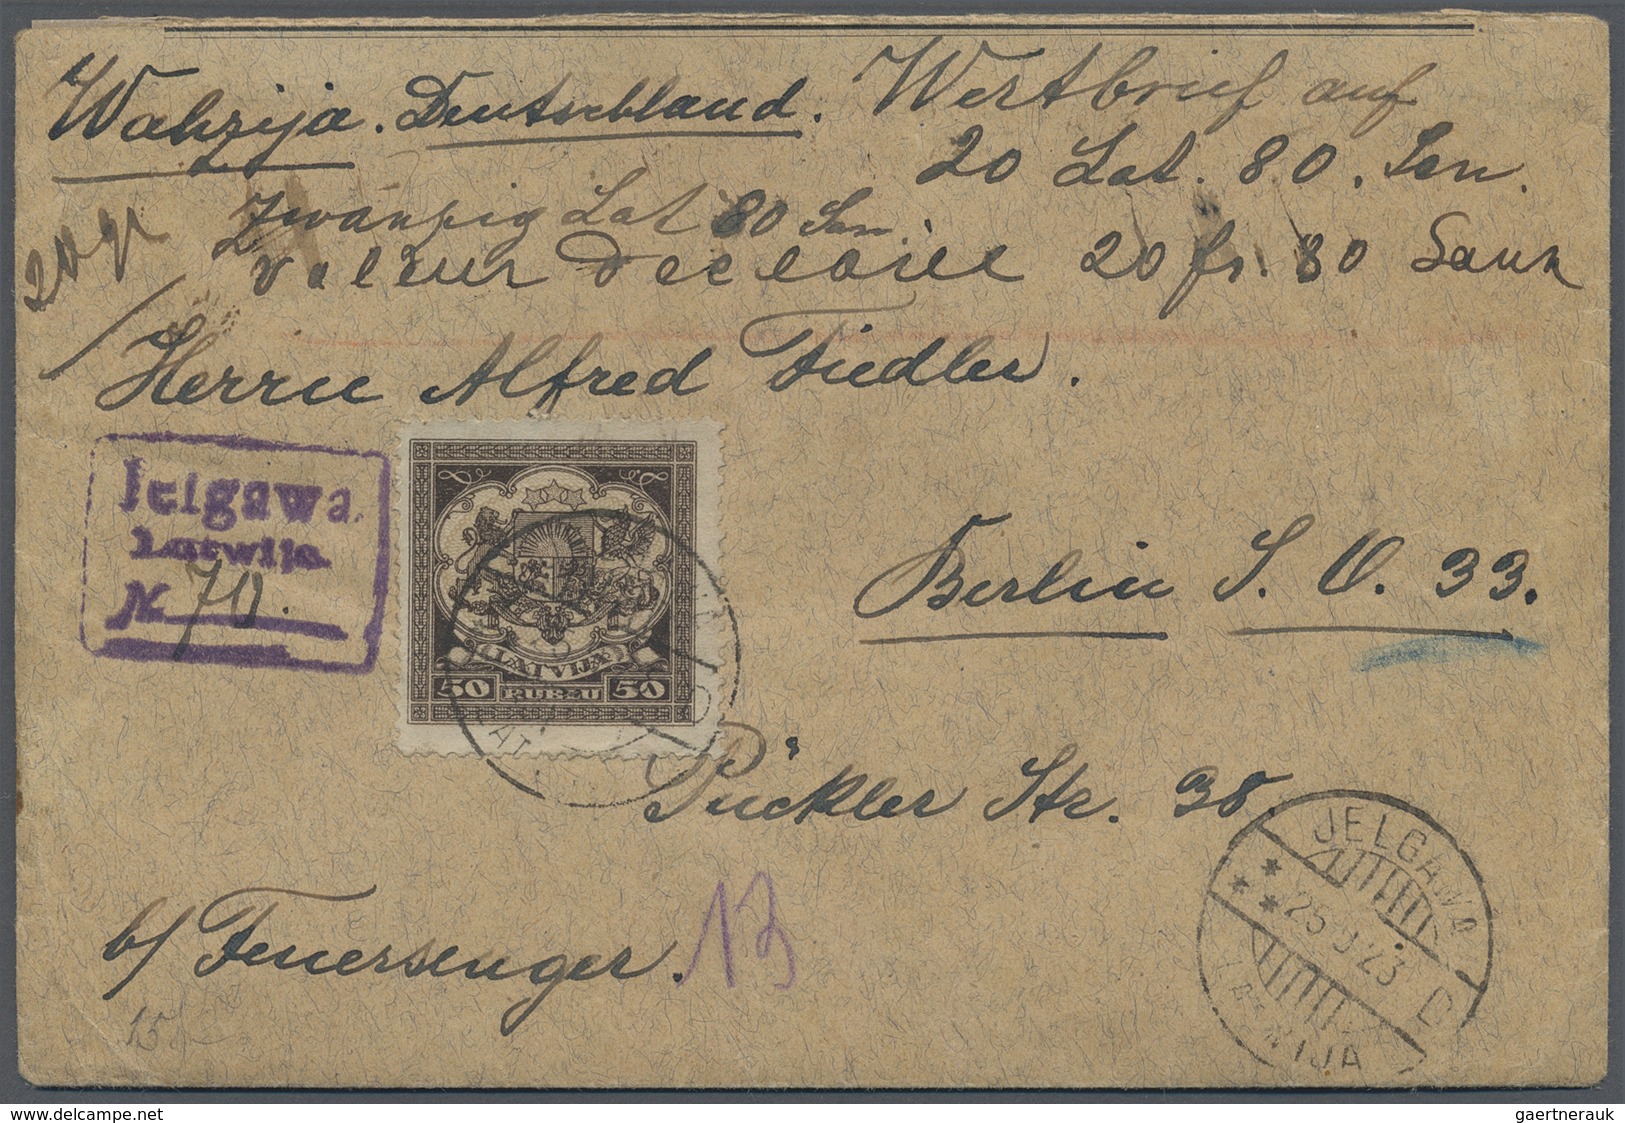 Wahzija. Deutschland. Wertbrief auf
20 Lat. 80. San.
Zwanzig Lat 80 San.
20 gr
valeur Declarée 20 fr. 80 Sant
Herrn Alfred Fiedler.
Jelgawa
Latwija.
N 70.
LATVIJA
50 RUBĻU 50
Berlin S. O. 33.
Pückler Str. 38.
JELGAWA
25 9 23
D
LATWIJA
b/ Feuersenger.
13
15
delcampe.net
gaertnerauk